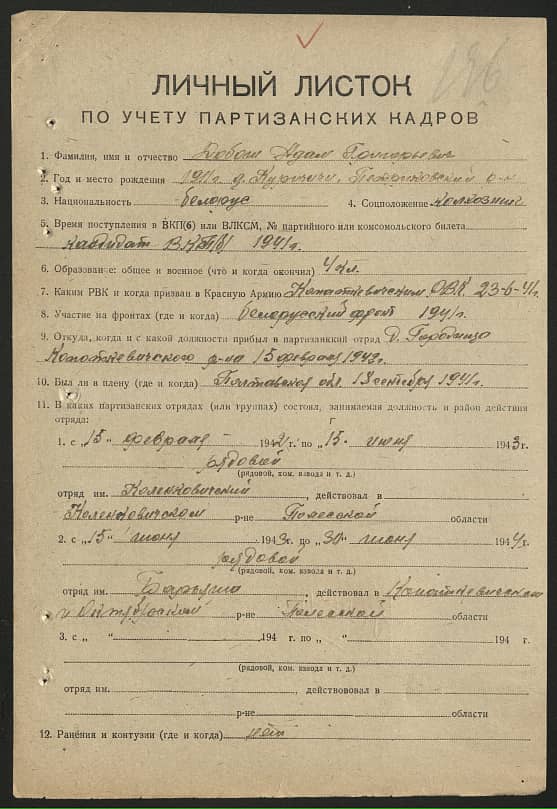 196
ЛИЧНЫЙ ЛИСТОК
ПО УЧЕТУ ПАРТИЗАНСКИХ КАДРОВ
1. Фамилия, имя и отчество Адам Григорьевич
2. Год и место рождения 1911 г. д. Куричичи, Петриковский р-н
3. Национальность белорус 4. Соцположение колхозник
5. Время поступления в ВКП(б) или ВЛКСМ, № партийного или комсомольского билета
кандидат ВКП(б) 1941 г.
6. Образование: общее и военное (что и когда окончил) 4 кл.
7. Каким РВК и когда призван в Красную Армию Копаткевичским РВК 23-6-41 г.
8. Участие на фронтах (где и когда) Белорусский фронт 1941 г.
9. Откуда, когда и с какой должности прибыл в партизанкий отряд д.
Копаткевичского р-на 15 февраля 1942 г.
10. Был ли в плену (где и когда) Полтавская обл. сентября 1941 г.
11. В каких партизанских отрядах (или группах) состоял, занимаемая должность и район действия
отряда: г
1. с „15" февраля 1942 г. по „15" июня 1943 г.
рядовой
(рядовой, ком. взвода и т. д.)
отряд им. , действовал в
р-не Полесской области
2. с „15" июня 1943 г. по „30" июня 1944 г.
рядовой
(рядовой, ком. взвода и т. д.)
отряд им. , действовал в Копаткевичском
и Октябрьском р-не Полесской области
3. с „ " 194 г. по „ " 194 г.
(рядовой, ком. взвода и т. д.)
отряд им. , действововал в
р-не области
12. Ранения и контузии (где и когда) нет